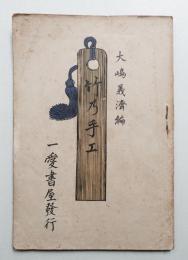 大嶋義濟編
竹乃手工
一愛書屋發行